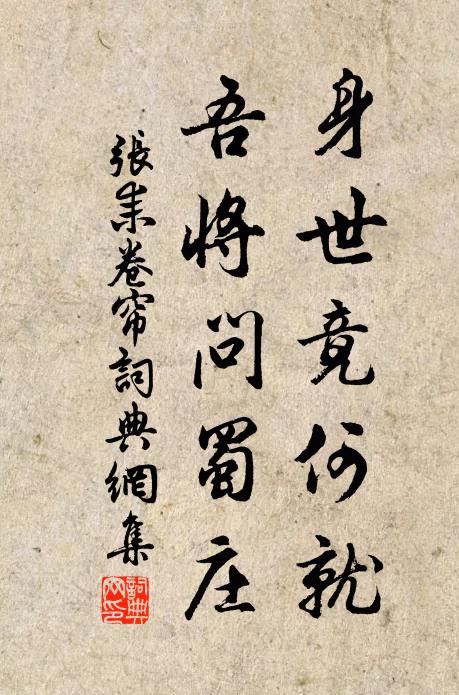 身世竟何就
吾将問蜀庄
張耒卷帘詞典網集
詞典網印